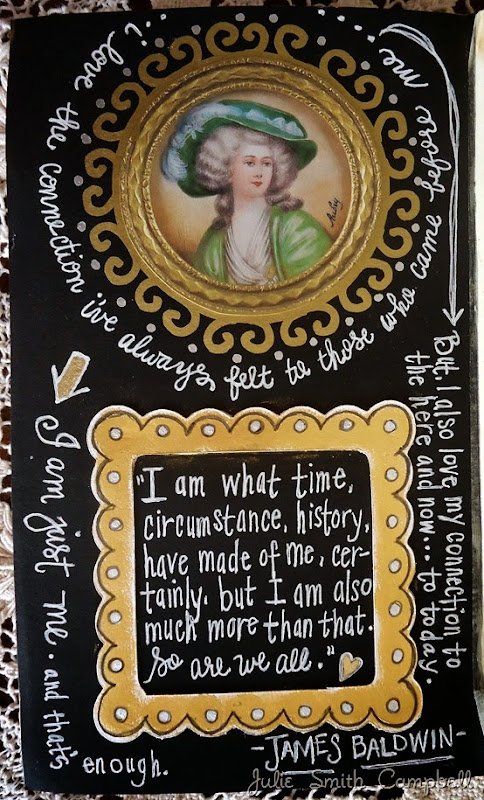 ...i love the connection i've always felt to those who came before me...
But. I also love my connection to
the here and now... to today.
I am just me. and that's
enough.
"I am what time,
circumstance, history,
have made of me, cer-
tainly. but I am also
much more than that.
So are we all."
-JAMES BALDWIN-
Julie Smith Campbell